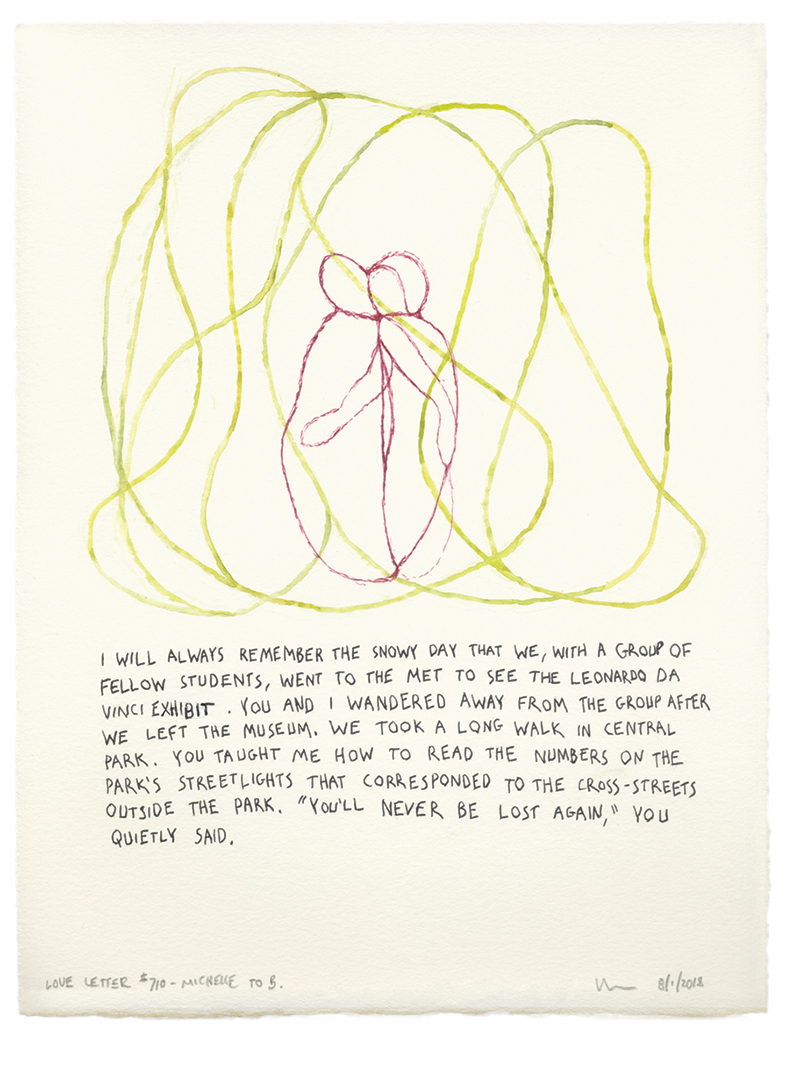 I WILL ALWAYS REMEMBER THE SNOWY DAY THAT WE, WITH A GROUP OF
FELLOW STUDENTS, WENT TO THE MET TO SEE THE LEONARDO DA
VINCI EXHIBIT. YOU AND I WANDERED AWAY FROM THE GROUP AFTER
WE LEFT THE MUSEUM. WE TOOK A LONG WALK IN CENTRAL
PARK. YOU TAUGHT ME HOW TO READ THE NUMBERS ON THE
PARK'S STREETLIGHTS THAT CORRESPONDED TO THE CROSS-STREETS
OUTSIDE THE PARK. "YOU'LL NEVER BE LOST AGAIN," YOU
QUIETLY SAID.
LOVE LETTER #710 - MICHELLE TO B. 8/1/2018